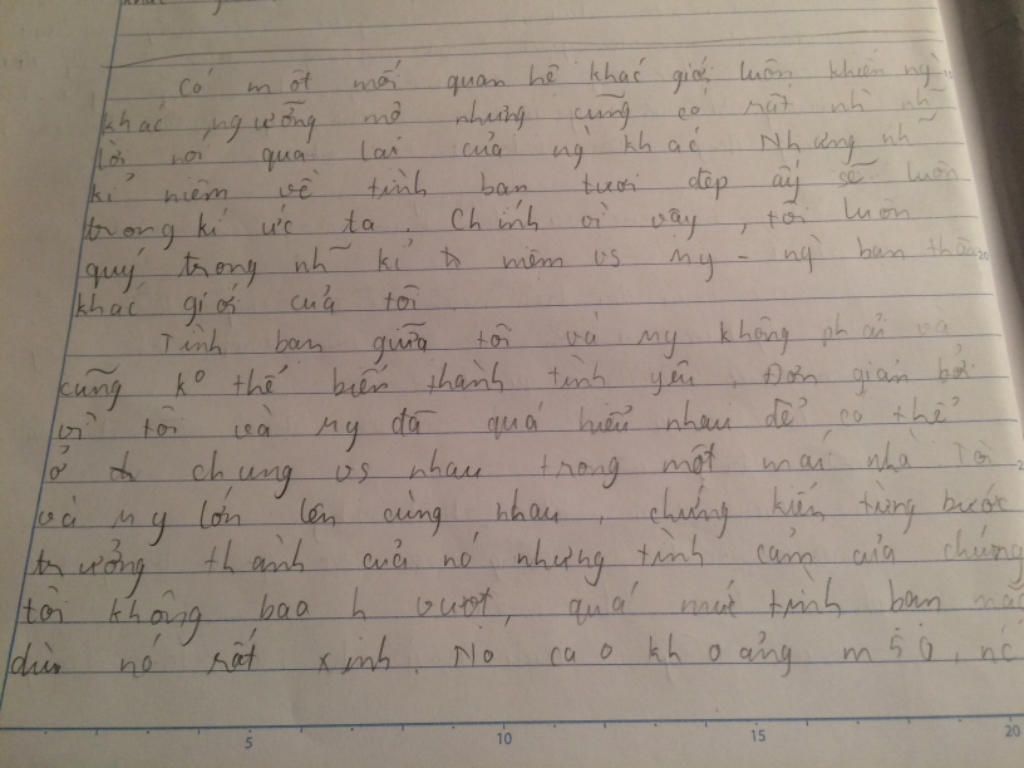 Có một mối quan hệ khác giới luôn khiến ng`
khác ngưỡng mộ nhưng cũng có rất nh` nh~
lời nói qua lại của ng` khác Nhưng nh~
kỉ niệm về tình bạn tươi đẹp ấy sẽ luôn
trong kí ức ta. Chính vì vậy, tôi luôn
quý trọng nh~ kỉ niệm vs My - ng` bạn thân
khác giới của tôi
Tình bạn giữa tôi và My không phải và
cũng ko thể biến thành tình yêu. Đơn giản bởi
vì tôi và My đã quá hiểu nhau để có thể
ở chung vs nhau trong một mái nhà Tôi
và My lớn lên cùng nhau, chứng kiến từng bước
trưởng thành của nó nhưng tình cảm của chúng
tôi không bao h vượt, quá mức tình bạn mặc
dù nó rất xinh. Nó cao khoảng m50, nó
5 10 15 20